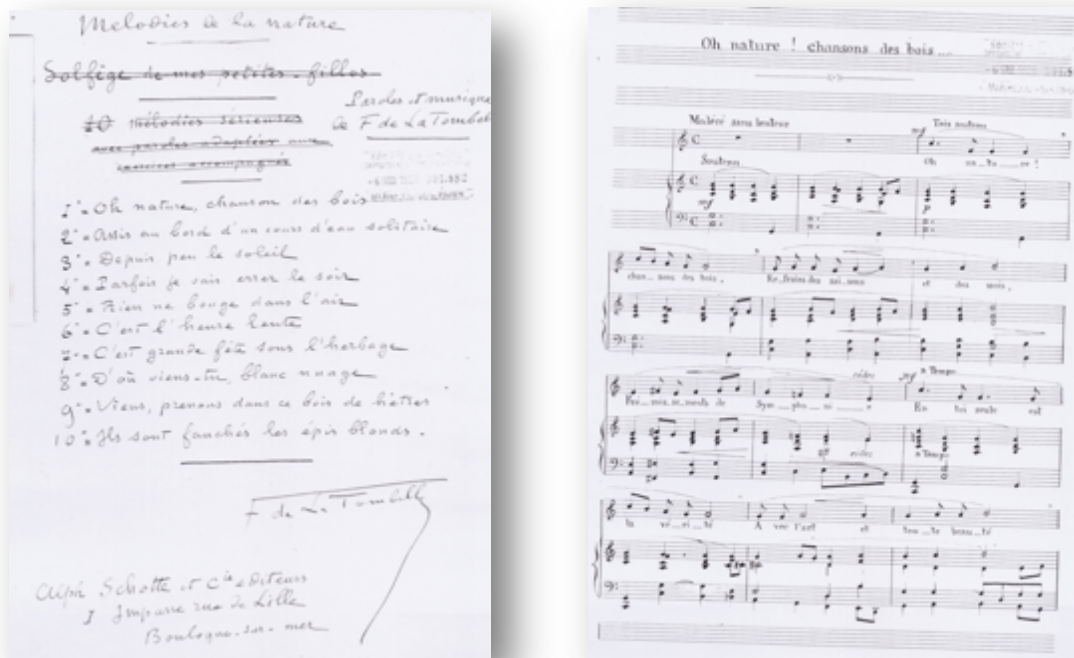 Melodies de la nature
Solfège de mes petites-filles
10 mélodies sérieuses
avec paroles adaptées aux
exercices accompagnés
Paroles et musique
de F de La Tombelle
1° = Oh nature, chanson des bois
2° = Assis au bord d'un cours d'eau solitaire
3° = Depuis peu le soleil
4° = Parfois je vais errer le soir
5° = Rien ne bouge dans l'air
6° = C'est l'heure lente
7° = C'est grande fête sous l'herbage
8° = D'où viens-tu, blanc nuage
9° = Viens, prenons dans ce bois de hêtres
10° = Ils sont fauchés les épis blonds.
F de La Tombelle
Alph Schotte et Cie editeurs
1 Impasse rue de Lille
Boulogne-sur-mer
Oh nature ! chansons des bois....
Modéré sans lenteur
Très soutenu
mf
Oh na_tu_re!
Soutenu
mf
p
chan_sons des bois,
Re_frains des sai_sons
et des mois,
cédez
mf
a Tempo
de
Sym_pho_ni_e
En toi seule est
cédez
a Tempo
la vé_ri_té
A_vec l'art
et
tou_te beau_té